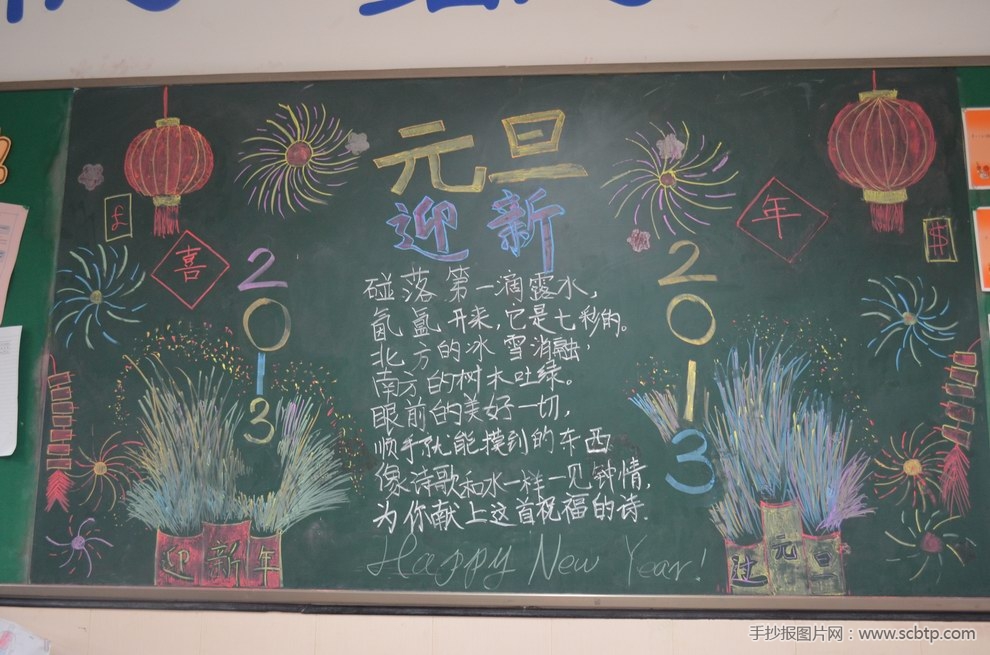 元旦
迎新
£
喜
年
$
2013
2013
碰落第一滴露水,
氤氲开来,它是七彩的。
北方的冰雪消融
南方的树木吐绿。
眼前的美好一切,
顺手就能摸到的东西
像诗歌和水一样一见钟情,
为你献上这首祝福的诗.
Happy New Year!
迎新年
过元旦
手抄报图片网：www.scbtp.com